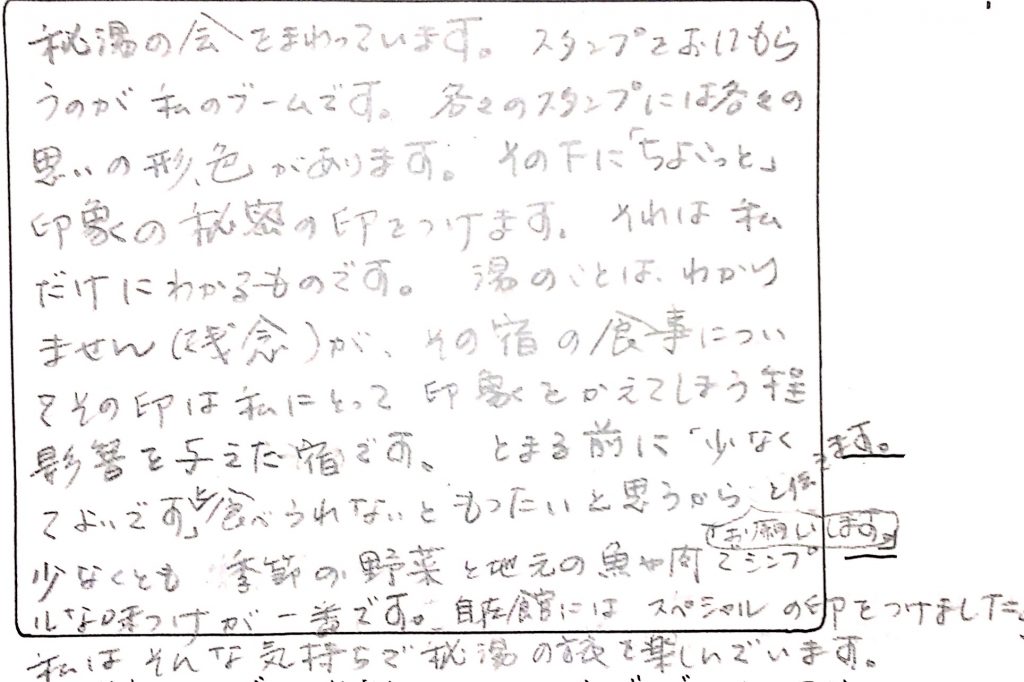 秘湯の会をまわっています。スタンプをおしてもら
うのが私のブームです。各々のスタンプには各々の
思いの形、色があります。その下に「ちょこっと」
印象の秘密の印をつけます。それは私
だけにわかるものです。湯のことは、わかり
ません(残念)が、その宿の食事につい
てその印は私にとって印象をかえてしまう程
影響を与えた宿です。とまる前に「少なく
てよいです」と食べられないともったいと思うから と伝えます。
「お願いします。」
少なくとも 季節の野菜と地元の魚や肉でシンプ
ルな味つけが一番です。自在館にはスペシャルの印をつけました。
私はそんな気持ちで秘湯の旅を楽しんでいます。